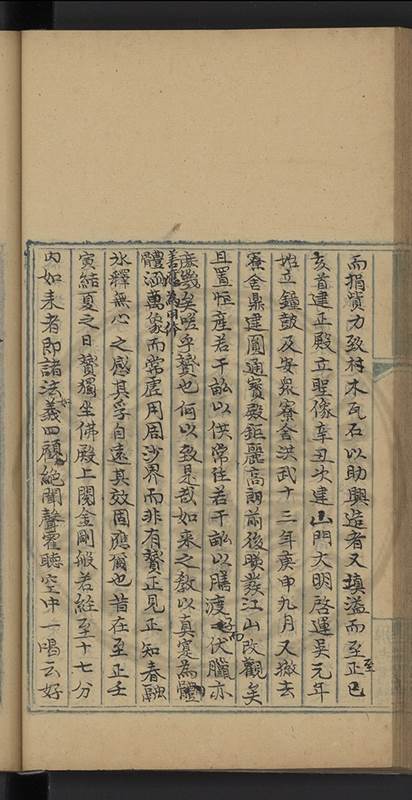 而捐貲力致材木瓦石以助興造者又填溢而至正已
至
亥首建正殿立聖像辛丑次建山門大明啓運吴元年
始立鐘鼓及安衆寮舍洪武十三年庚申九月又撤去
寮舍鼎建圓通寳殿鉅麗高朗前後暎發江山改觀矣
且置恒産若干畝以供常住若干畝以贍渡
而伏臘亦
庶幾矣嗟乎贊也何以致是哉如来之教以真寔為體
善應為用作
體涵萬像而常虛用周沙界而非有贊正見正知春融
氷釋無心之感其孚自遠其效固應爾也昔在至正壬
寅結夏之日贊獨坐佛殿上閲金剛般若経至十七分
内如来者即諸法
義四顧
絶聞聲霍聴空中一喝云好